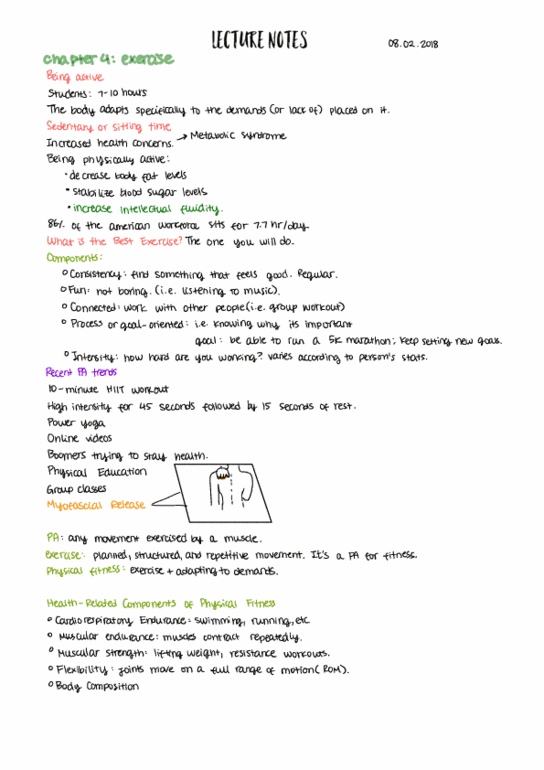 LECTURE NOTES
08.02.2018
chapter 4: exercise
Being active
Students: 7-10 hours
The body adapts specifically to the demands (or lack of) placed on it.
Sedentary or sitting time
Increased health concerns. → Metabolic syndrome
Being physically active:
• decrease body fat levels
• stabilize blood sugar levels
• increase intellectual fluidity.
86% of the american workforce sits for 7.7 hr/day.
What is the Best Exercise? The one you will do.
Components:
o Consistency: find something that feels good. Regular.
o Fun: not boring. (i.e. listening to music).
o Connected: work with other people (i.e. group workout)
o Process or goal-oriented: i.e. knowing why its important
goal: be able to run a 5k marathon; keep setting new goals.
o Intensity: how hard are you working? varies according to person's stats.
Recent PA trends
10-minute HIIT workout
High intensity for 45 seconds followed by 15 seconds of rest.
Power yoga
Online videos
Boomers trying to stay health.
Physical Education
Group classes
Myofascial Release
PA: any movement exercised by a muscle.
exercise: planned, structured, and repetitive movement. It's a PA for fitness.
Physical fitness: exercise + adapting to demands.
Health-Related Components of Physical Fitness
o Cardiorespiratory Endurance: swimming, running, etc
o Muscular endurance: muscles contract repeatedly.
o Muscular strength: lifting weight, resistance workouts.
o Flexibility: joints move on a full range of motion (ROM).
o Body Composition